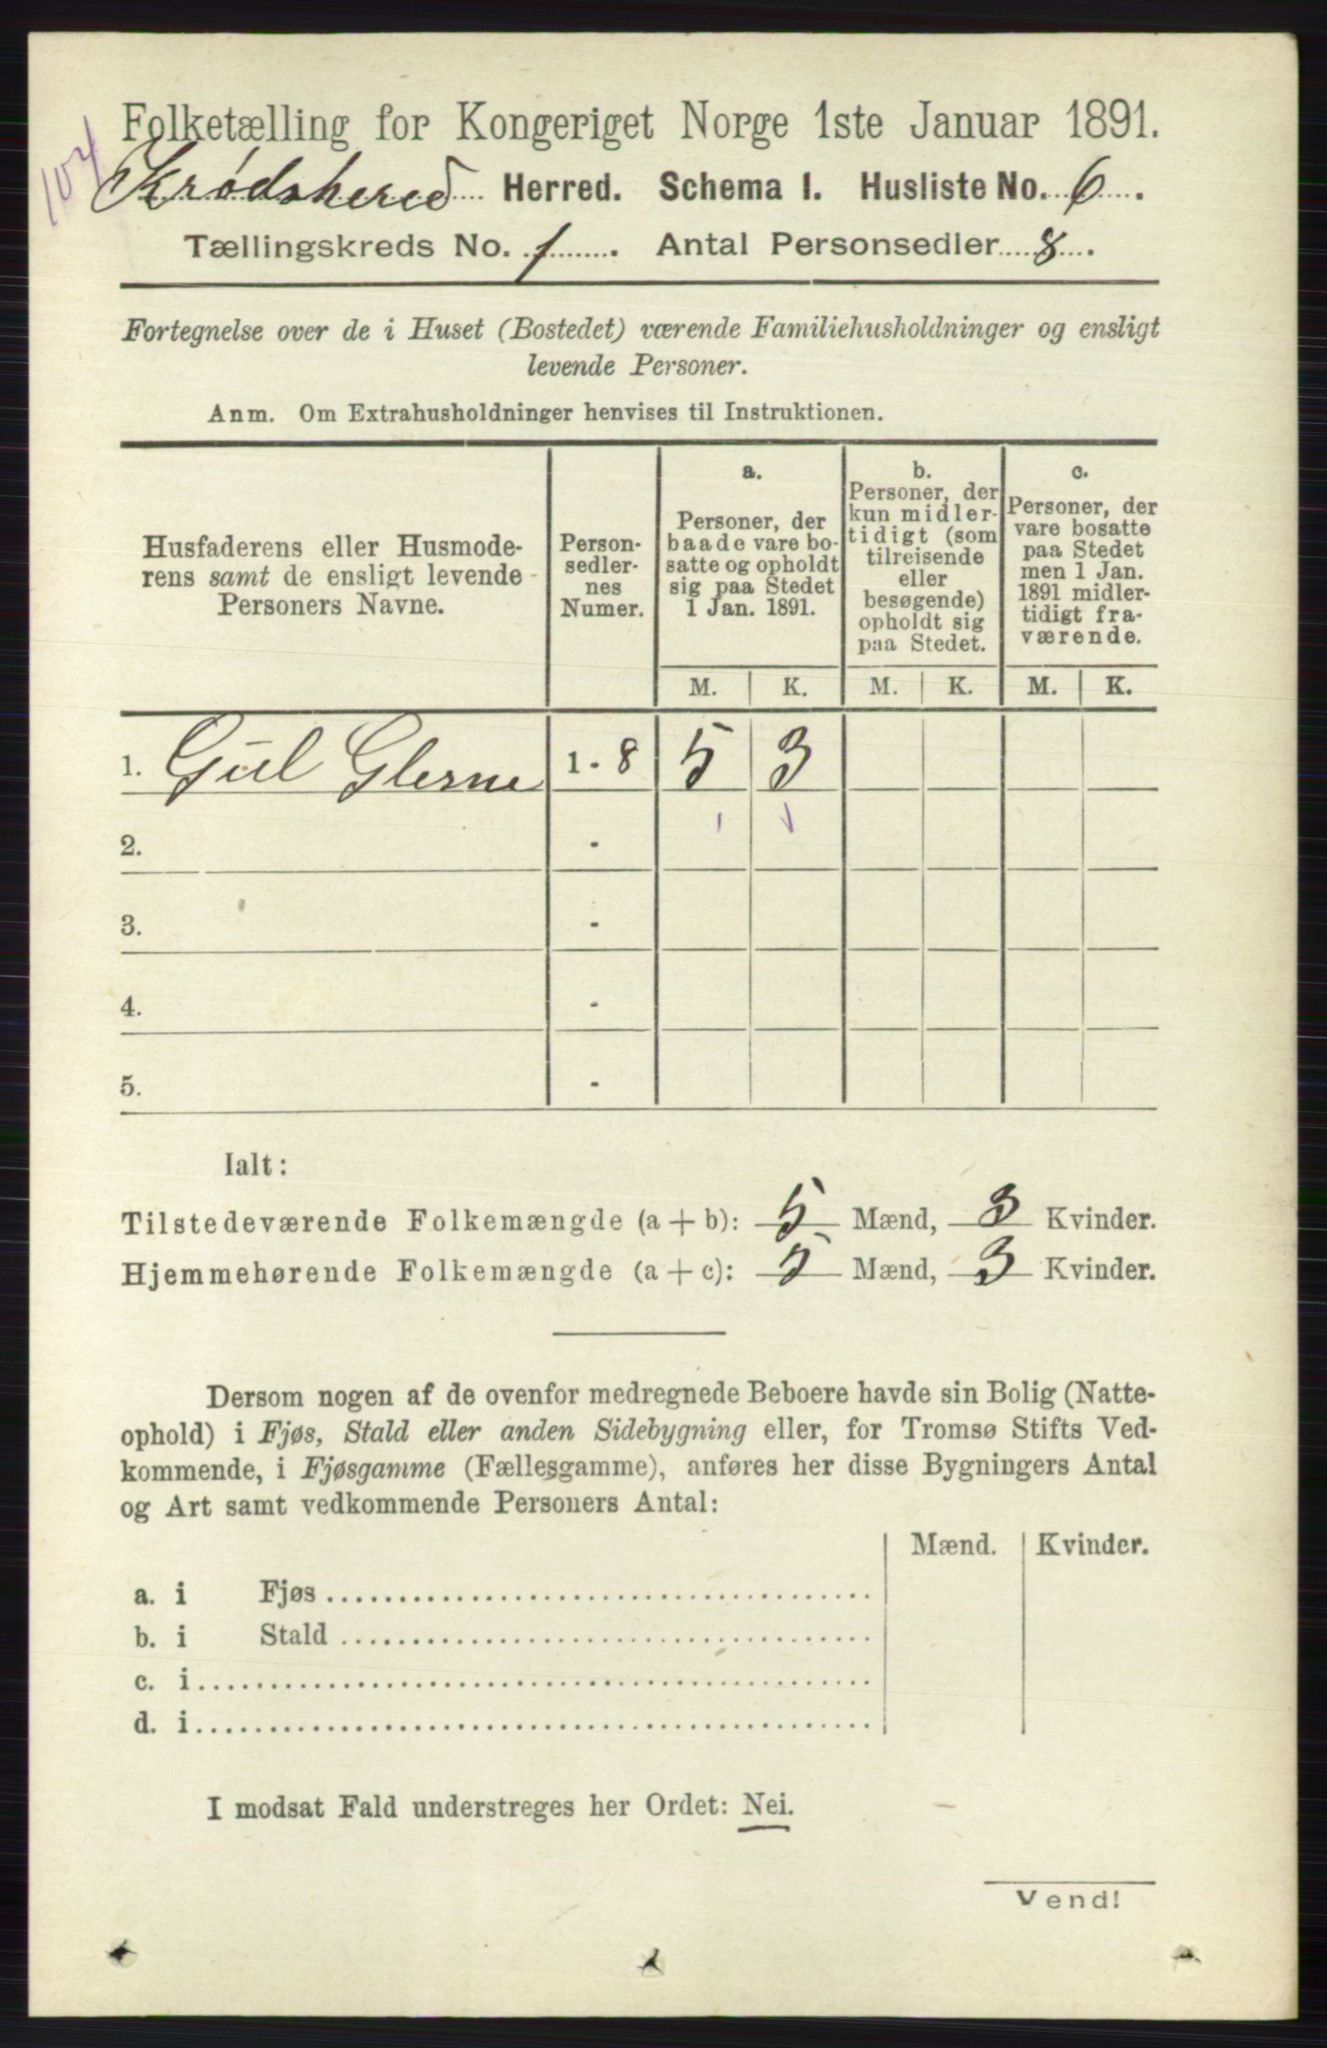 Folketælling for Kongeriget Norge 1ste Januar 1891.
107
Krødshered Herred. Schema 1. Husliste No. 6.
Tællingskreds No. 1. Antal Personsedler 8.
Fortegnelse over de i Huset (Bostedet) værende Familiehusholdninger og ensligt
levende Personer.
Anm. Om Extrahusholdninger henvises til Instruktionen.
Husfaderens eller Husmode-
rens samt de ensligt levende
Personers Navne.
Person-
sedler-
nes
Numer.
a.
Personer, der
baade vare bo-
satte og opholdt
sig paa Stedet
1 Jan. 1891.
b.
Personer, der
kun midler-
tidigt (som
tilreisende
eller
besøgende)
opholdt sig
paa Stedet.
c.
Personer, der
vare bosatte
paa Stedet
men 1 Jan.
1891 midler-
tidigt fra-
værende.
M. K. M. K. M. K.
1. Gul Glesne 1 - 8 5 3
2. -
3. -
4. -
5. -
Ialt:
Tilstedeværende Folkemængde (a + b): 5 Mænd, 3 Kvinder.
Hjemmehørende Folkemængde (a + c): 5 Mænd, 3 Kvinder.
Dersom nogen af de ovenfor medregnede Beboere havde sin Bolig (Natte-
ophold) i Fjøs, Stald eller anden Sidebygning eller, for Tromsø Stifts Ved-
kommende, i Fjøsgamme (Fællesgamme), anføres her disse Bygningers Antal
og Art samt vedkommende Personers Antal:
Mænd. Kvinder.
a. i Fjøs
b. i Stald
c. i
d. i
I modsat Fald understreges her Ordet: Nei.
Vend!